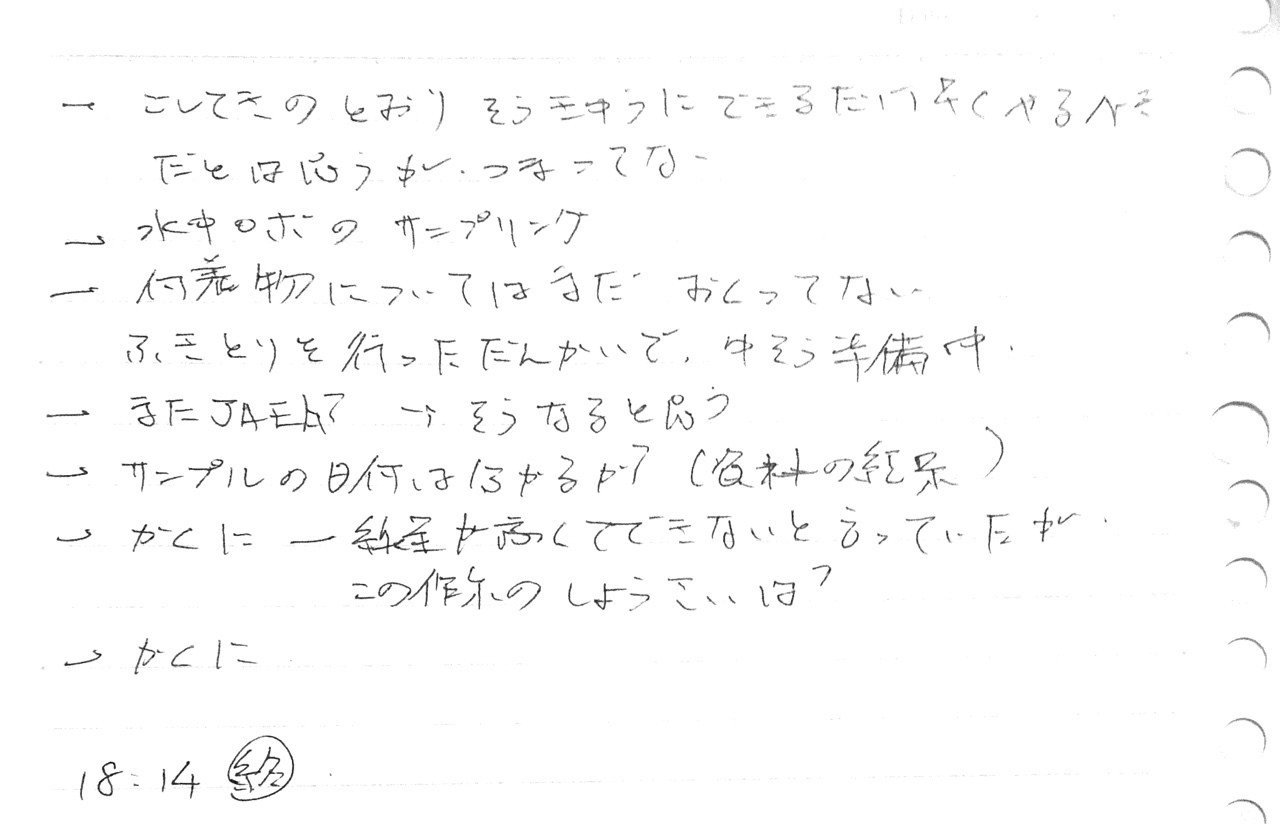 → ごしてきのとおり そうきゅうにできるだけ早くやるべき
だとは思うが、つまってない
→ 水中ロボのサンプリング
→ 付着物についてはまだ おくってない
ふきとりを行っただんかいで、ゆそう準備中.
→ またJAEA? → そうなると思う
→ サンプルの日付は分かるか?(資料の結果)
→ かくに ー 線量が高くてできないと言っていたが.
この作業のしょうさいは?
→ かくに
18:14 終